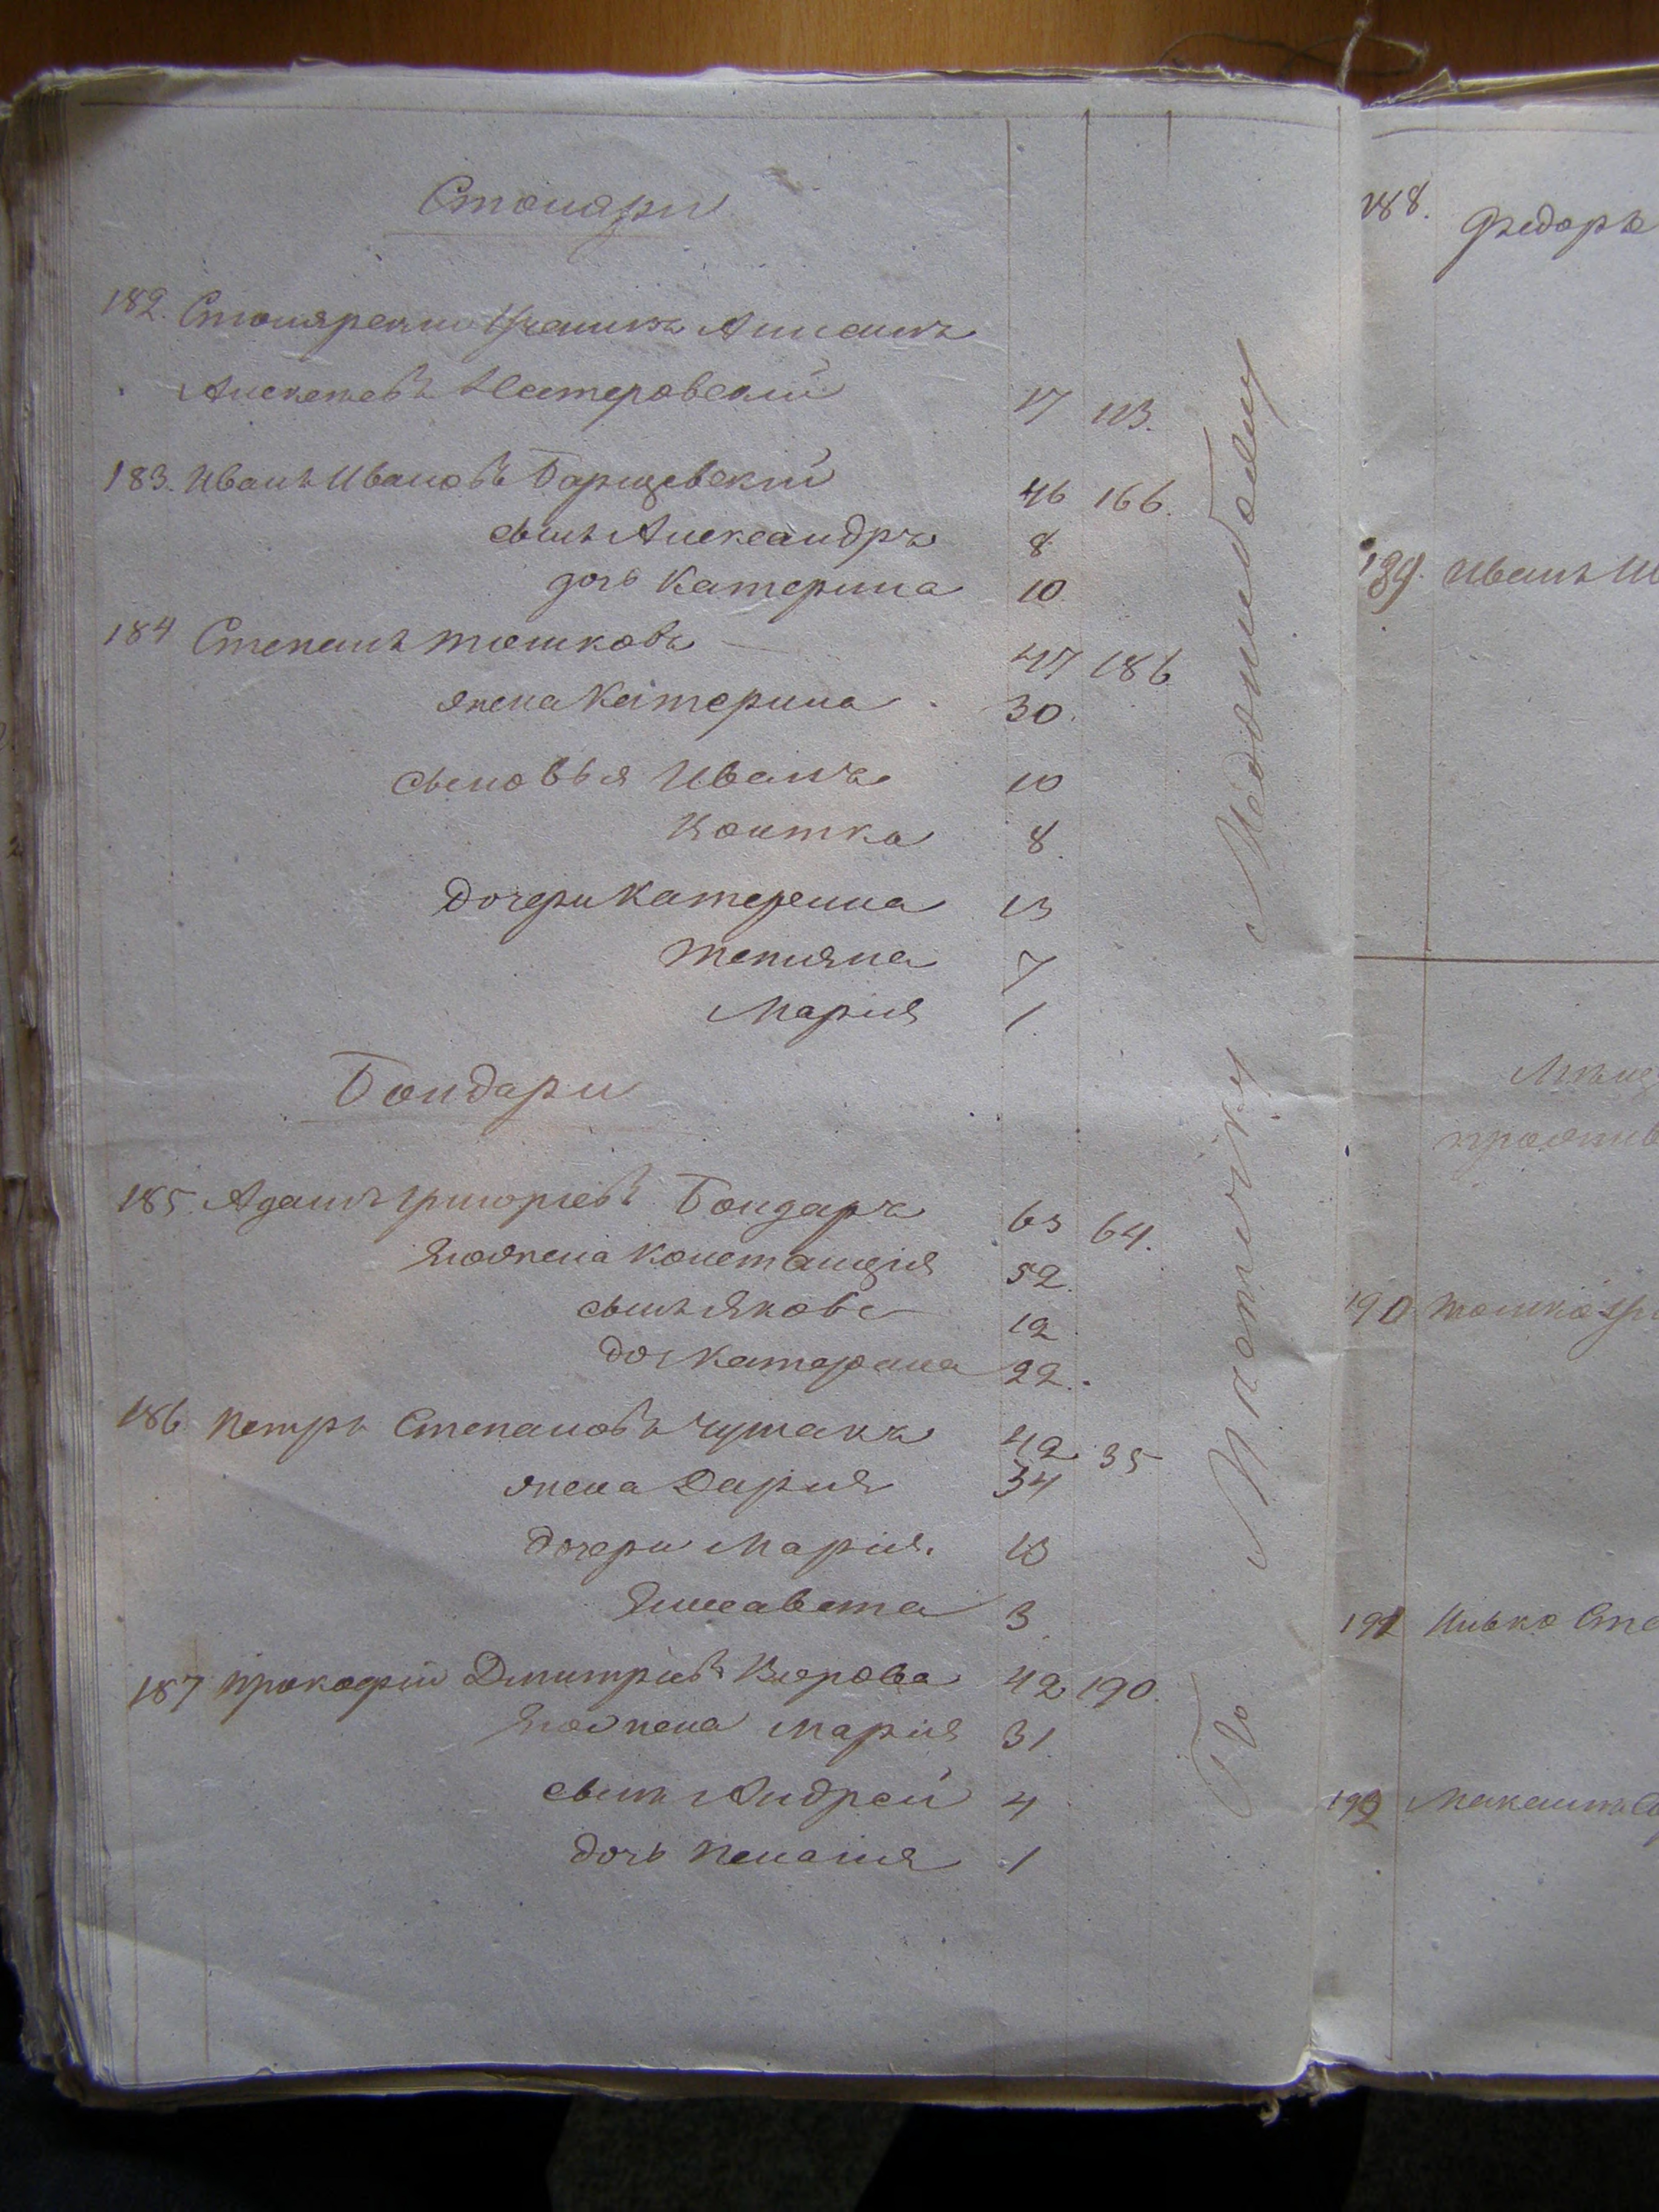 Столяри
182. Столярски Ученикъ
Алексеевъ Нестеровский 17 113.
183. Иванъ Ивановъ Барщевский 46 166.
сынъ Александръ 8
дочь Катерина 10
184 Степанъ Тошковъ 47 186
жена Катерина 30.
сыновья Иванъ 10
Коитка 8.
дочери Катерина 13
Татияна 7
Мария 1
Бондари
185. Адамъ Григориевъ Бондаръ 63 64.
Его жена Констанция 52.
сынъ Яковъ 12
доч Катерина 22.
186. Петръ Степановъ Чумакъ 42 35
жена Дария 34
дочери Мария. 13
Елисавета 3
187 Прокофий Дмитриевъ 42 190.
Его жена Мария 31.
сынъ Андрей 4
дочь Пелагия 1
По
188.
Федоръ
189. Иванъ
190
191 Илько Сте
192